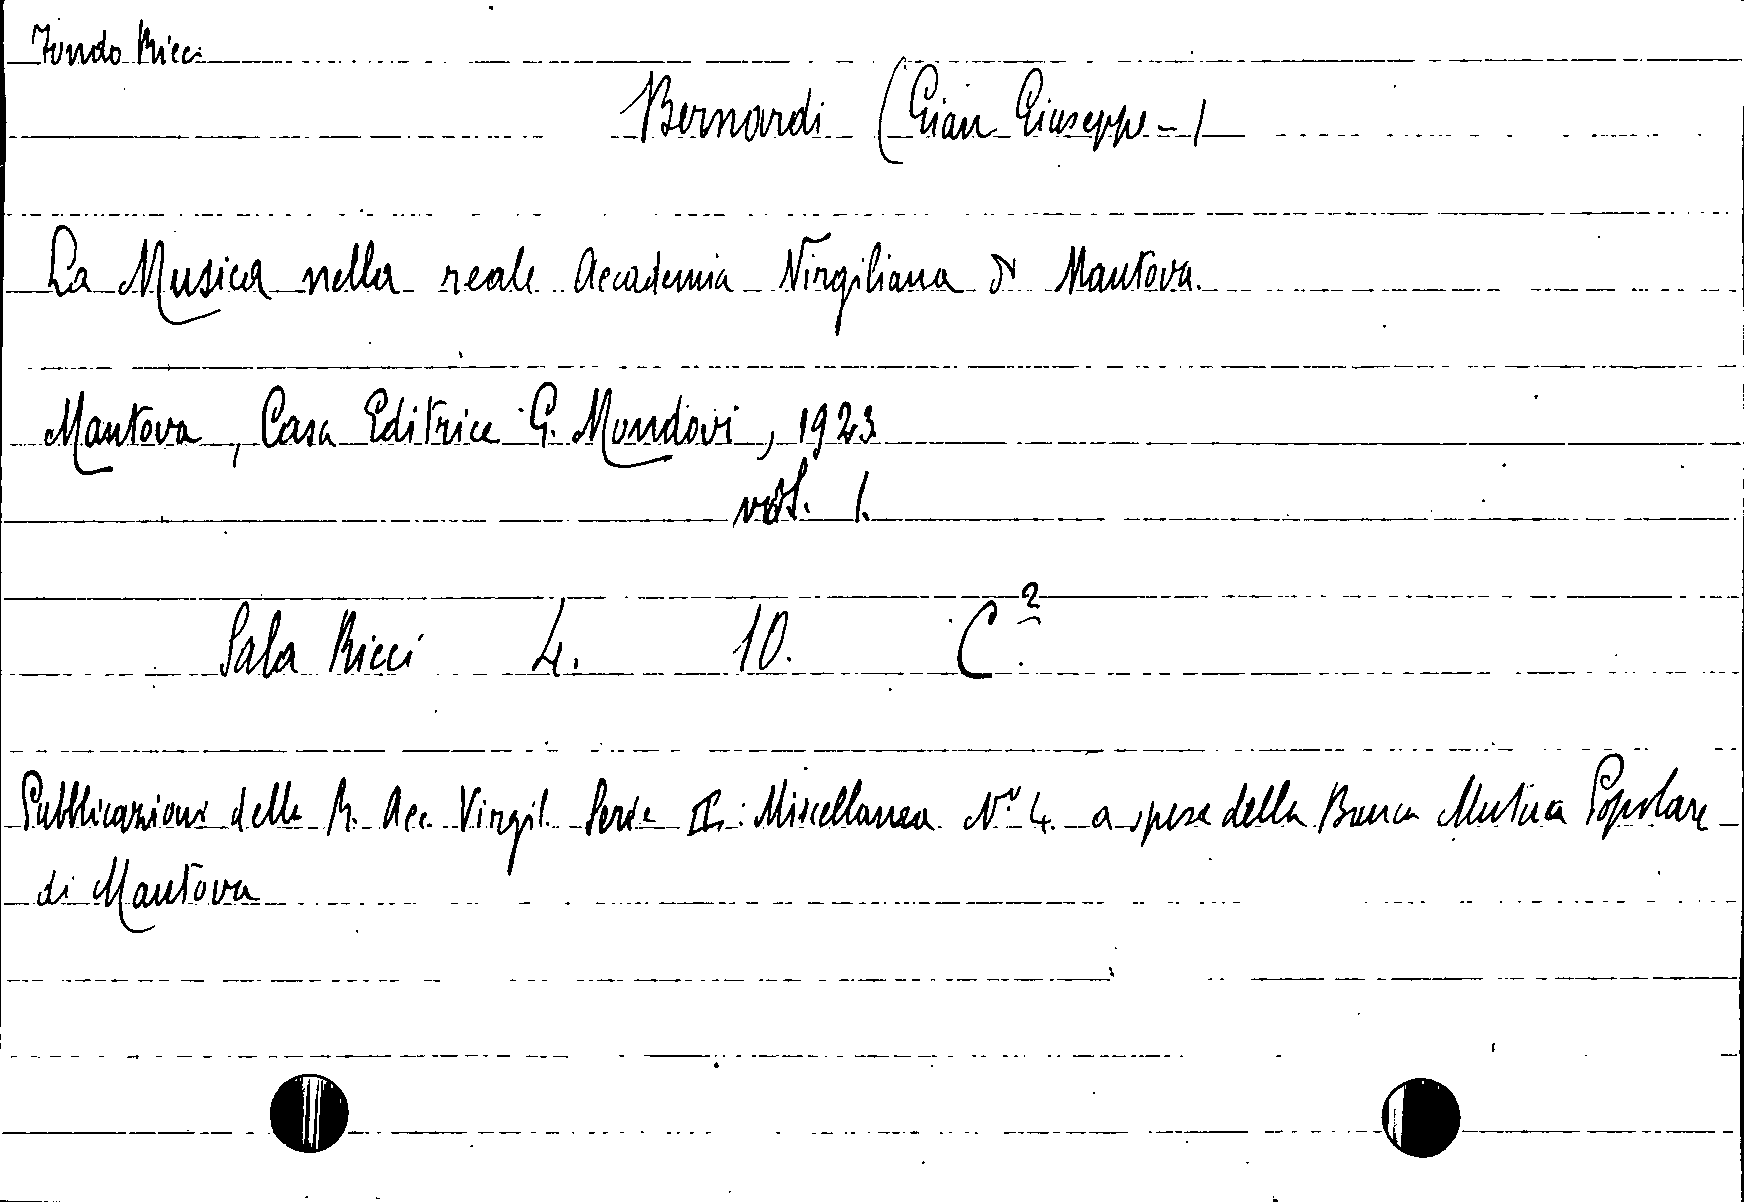 Fondo Ricci
Bernardi (Gian Giuseppe - )
La Musica nella reale Accademia Virgiliana di Mantova.
Mantova, Casa Editrice G. Mondovi, 1923
vol. 1.
Sala Ricci 4. 10. C.²
Pubblicazioni della R. Acc. Virgil. Serie II: Miscellanea N.º 4. a spese della Banca Mutua Popolare
di Mantova